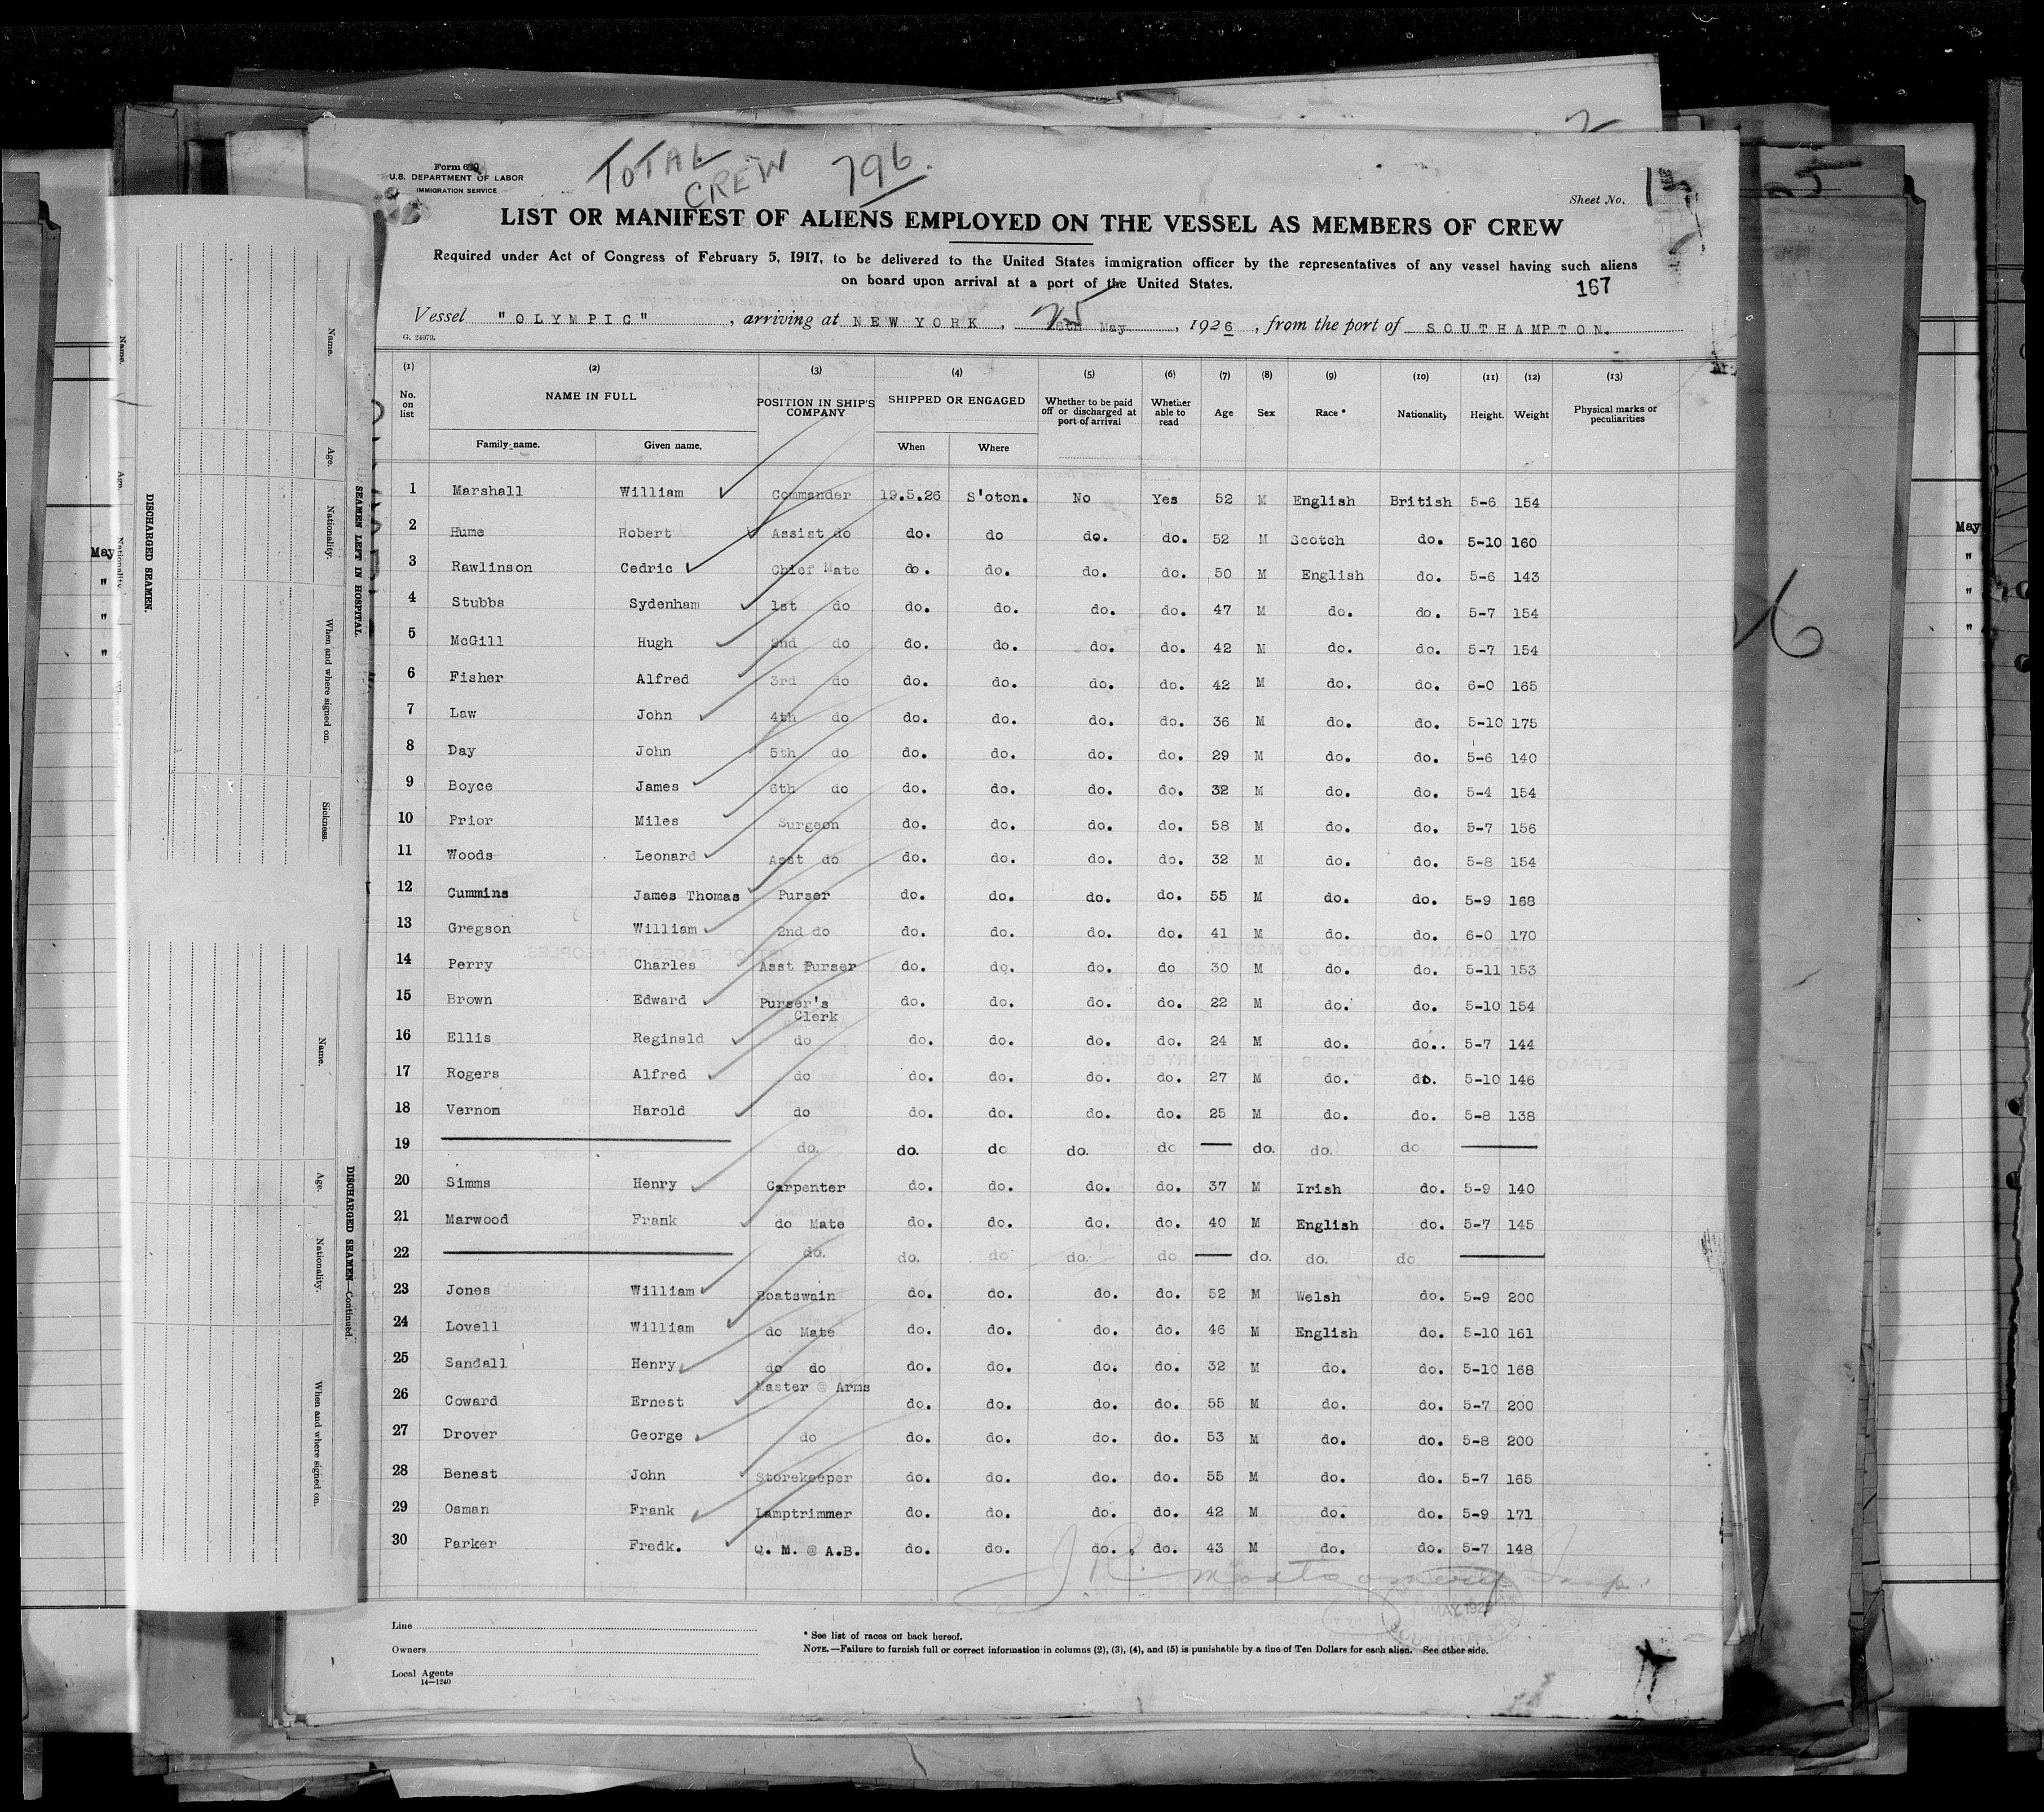 TOTAL CREW 796.
Form 689
U.S. DEPARTMENT OF LABOR
IMMIGRATION SERVICE
Sheet No. 1
LIST OR MANIFEST OF ALIENS EMPLOYED ON THE VESSEL AS MEMBERS OF CREW
Required under Act of Congress of February 5, 1917, to be delivered to the United States immigration officer by the representatives of any vessel having such aliens
on board upon arrival at a port of the United States.
167
Vessel "OLYMPIC", arriving at NEW YORK, 25 May, 1926, from the port of SOUTHAMPTON.
G. 24079.
(1) (2) (3) (4) (5) (6) (7) (8) (9) (10) (11) (12) (13)
No. on list NAME IN FULL POSITION IN SHIP'S COMPANY SHIPPED OR ENGAGED Whether to be paid off or discharged at port of arrival Whether able to read Age Sex Race * Nationality Height. Weight Physical marks or peculiarities
Family name. Given name. When Where
1 Marshall William Commander 19.5.26 S'oton. No Yes 52 M English British 5-6 154
2 Hume Robert Assist do do. do do. do. 52 M Scotch do. 5-10 160
3 Rawlinson Cedric Chief Mate do. do. do. do. 50 M English do. 5-6 143
4 Stubbs Sydenham 1st do do. do. do. do. 47 M do. do. 5-7 154
5 McGill Hugh 2nd do do. do. do. do. 42 M do. do. 5-7 154
6 Fisher Alfred 3rd do do. do. do. do. 42 M do. do. 6-0 165
7 Law John 4th do do. do. do. do. 36 M do. do. 5-10 175
8 Day John 5th do do. do. do. do. 29 M do. do. 5-6 140
9 Boyce James 6th do do. do. do. do. 32 M do. do. 5-4 154
10 Prior Miles Surgeon do. do. do. do. 58 M do. do. 5-7 156
11 Woods Leonard Asst do do. do. do. do. 32 M do. do. 5-8 154
12 Cummins James Thomas Purser do. do. do. do. 55 M do. do. 5-9 168
13 Gregson William 2nd do do. do. do. do. 41 M do. do. 6-0 170
14 Perry Charles Asst Purser do. do. do. do 30 M do. do. 5-11 153
15 Brown Edward Purser's Clerk do. do. do. do. 22 M do. do. 5-10 154
16 Ellis Reginald do do. do. do. do. 24 M do. do.. 5-7 144
17 Rogers Alfred do do. do. do. do. 27 M do. do. 5-10 146
18 Vernon Harold do do. do. do. do. 25 M do. do. 5-8 138
19 do. do. do do. do do. do. do
20 Simms Henry Carpenter do. do. do. do. 37 M Irish do. 5-9 140
21 Marwood Frank do Mate do. do. do. do. 40 M English do. 5-7 145
22 do. do. do do. do do. do. do
23 Jones William Boatswain do. do. do. do. 52 M Welsh do. 5-9 200
24 Lovell William do Mate do. do. do. do. 46 M English do. 5-10 161
25 Sandall Henry do do do. do. do. do. 32 M do. do. 5-10 168
26 Coward Ernest Master @ Arms do. do. do. do. 55 M do. do. 5-7 200
27 Drover George do do. do. do. do. 53 M do. do. 5-8 200
28 Benest John Storekeeper do. do. do. do. 55 M do. do. 5-7 165
29 Osman Frank Lamptrimmer do. do. do. do. 42 M do. do. 5-9 171
30 Parker Fredk. Q. M. @ A.B. do. do. do. do. 43 M do. do. 5-7 148
J. R. Montgomery Insp.
MAY 192
Line
Owners
Local Agents
14—1240
* See list of races on back hereof.
NOTE.—Failure to furnish full or correct information in columns (2), (3), (4), and (5) is punishable by a fine of Ten Dollars for each alien. See other side.
DISCHARGED SEAMEN.
SEAMEN LEFT IN HOSPITAL.
Name.
Age.
Nationality.
When and where signed on.
Sickness.
DISCHARGED SEAMEN—Continued.
Name.
Age.
Nationality.
When and where signed on.
Name.
Age.
Nationality.
May
"
"
"
May
"
"
"